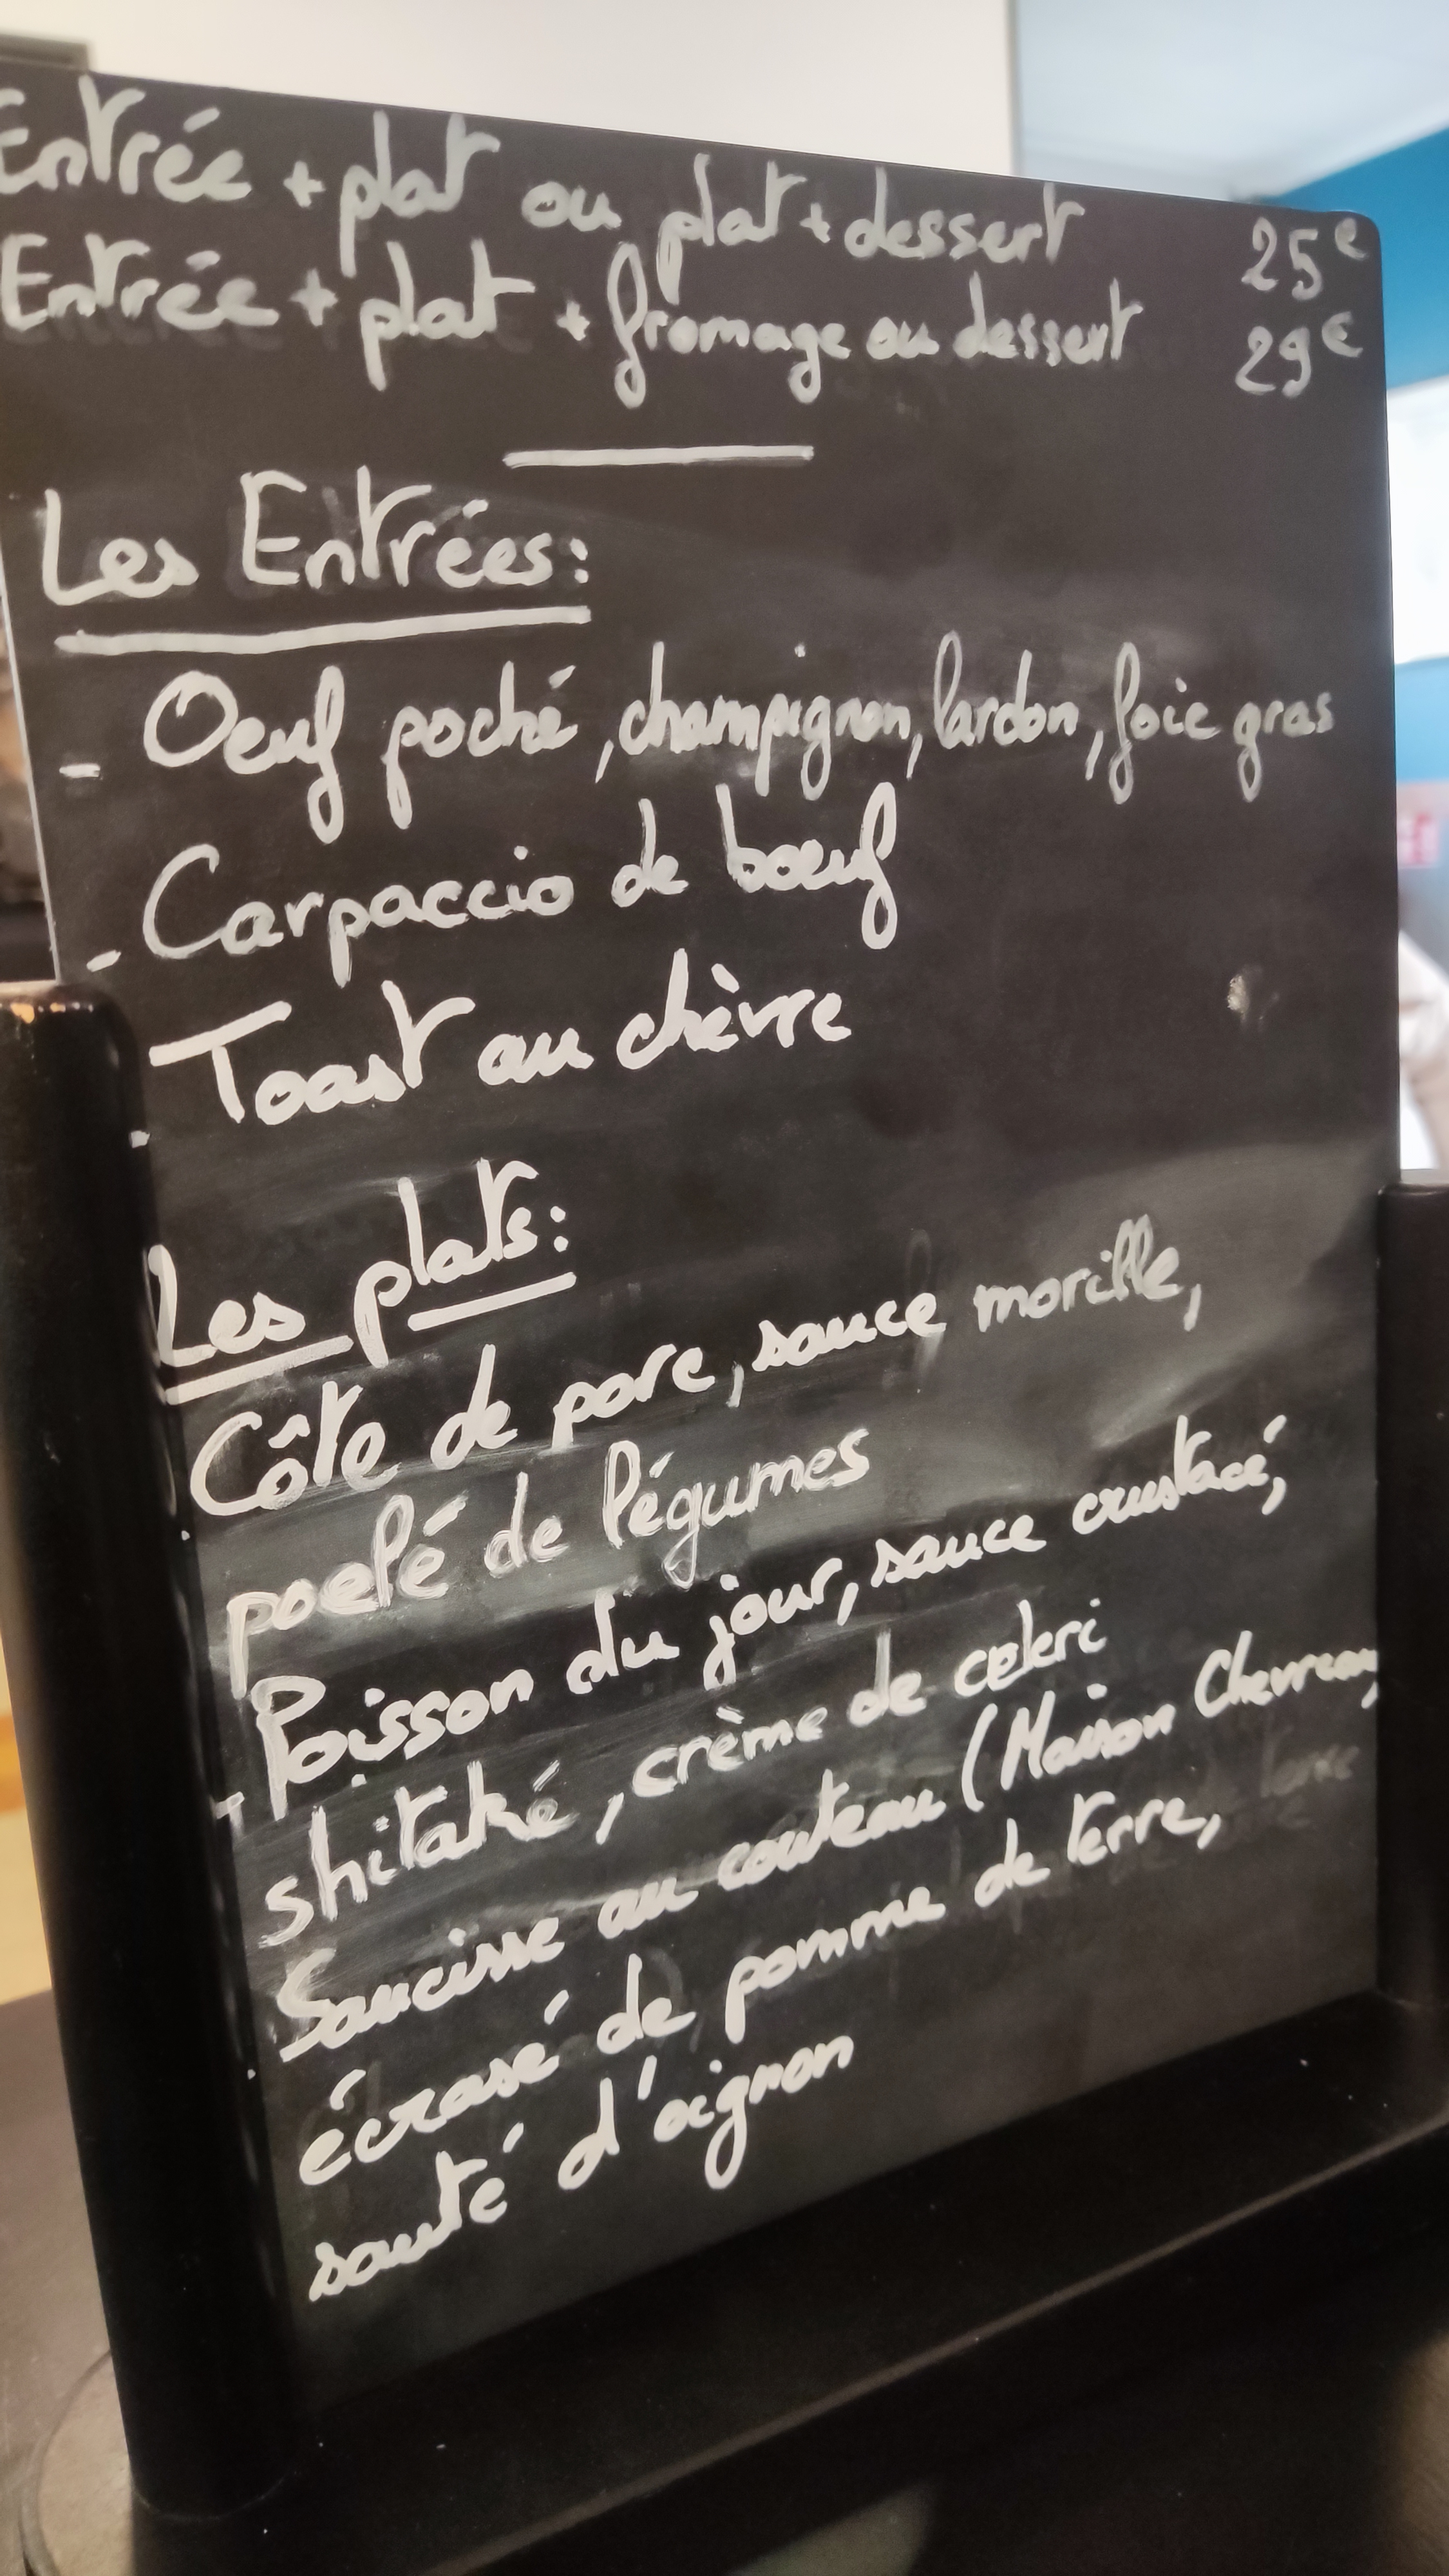 Entrée + plat ou plat + dessert 25€
Entrée + plat + fromage ou dessert 29€
Les Entrées:
- Oeuf poché, champignon, lardon, foie gras
- Carpaccio de boeuf
- Toast au chèvre
Les plats:
Côte de porc, sauce morille,
poelé de légumes
- Poisson du jour, sauce crustacé,
shitaké, crème de celeri
Saucisse au couteau (Maison Chevreau)
écrasé de pomme de terre,
sauté d'oignon